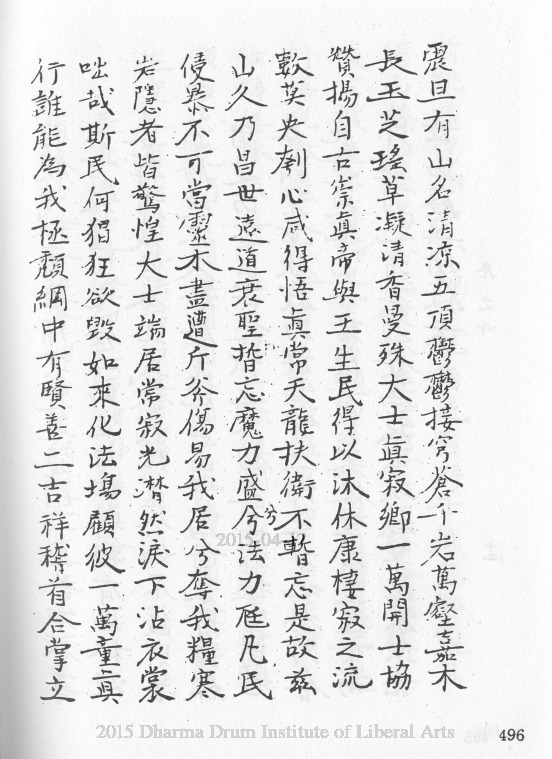 震旦有山名清凉五頂鬱鬱接穹蒼千岩萬壑嘉木
長玉芝瑤草凝清香曼殊大士眞寂鄉一萬開士協
贊揚自古崇眞帝與王生民得以沐休康棲寂之流
數莫央刳心咸得悟眞常天龍扶衛不暫忘是故茲
山久乃昌世遠道衰聖哲忘魔力盛兮法力尩凡民
侵暴不可當靈木盡遭斤斧傷易我居兮奪我糧寒
岩隱者皆驚惶大士端居常寂光潸然淚下沾衣裳
咄哉斯民何猖狂欲毀如來化法場顧彼一萬童眞
行誰能為我極頹綱中有賢善二吉祥稽首合掌立
兮
2015-04-
2015 Dharma Drum Institute of Liberal Arts
496